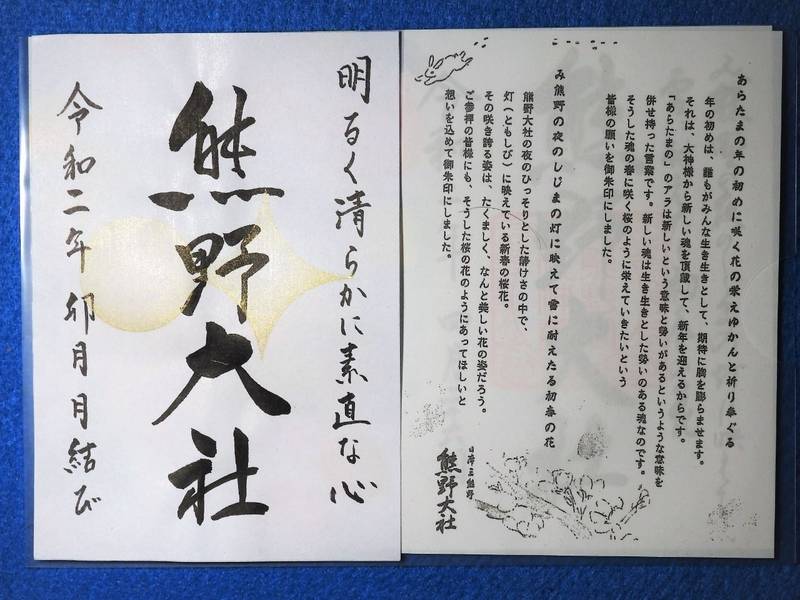 明るく清らかに素直な心
熊野大社
令和二年 卯月 月結び
あらたまの年の初めに咲く花の栄えゆかんと祈り奉ぐる
年の初めは、誰もがみんな生き生きとして、期待に胸を膨らませます。
それは、大神様から新しい魂を頂蔵して、新年を迎えるからです。
「あらたまの」のアラは新しいという意味と勢いがあるというような意味を
併せ持った言葉です。新しい魂は生き生きとした勢いのある魂なのです。
そうした魂の春に咲く桜のように栄えていきたいという
皆様の願いを御朱印にしました。
み熊野の夜のしじまの灯に映えて雪に耐えたる初春の花
熊野大社の夜のひっそりとした静けさの中で、
灯(ともしび)に映えている新春の桜花。
その咲き誇る姿は、たくましく、なんと美しい花の姿だろう。
ご参拝の皆様にも、そうした桜の花のようにあってほしいと
想いを込めて御朱印にしました。
熊野大社